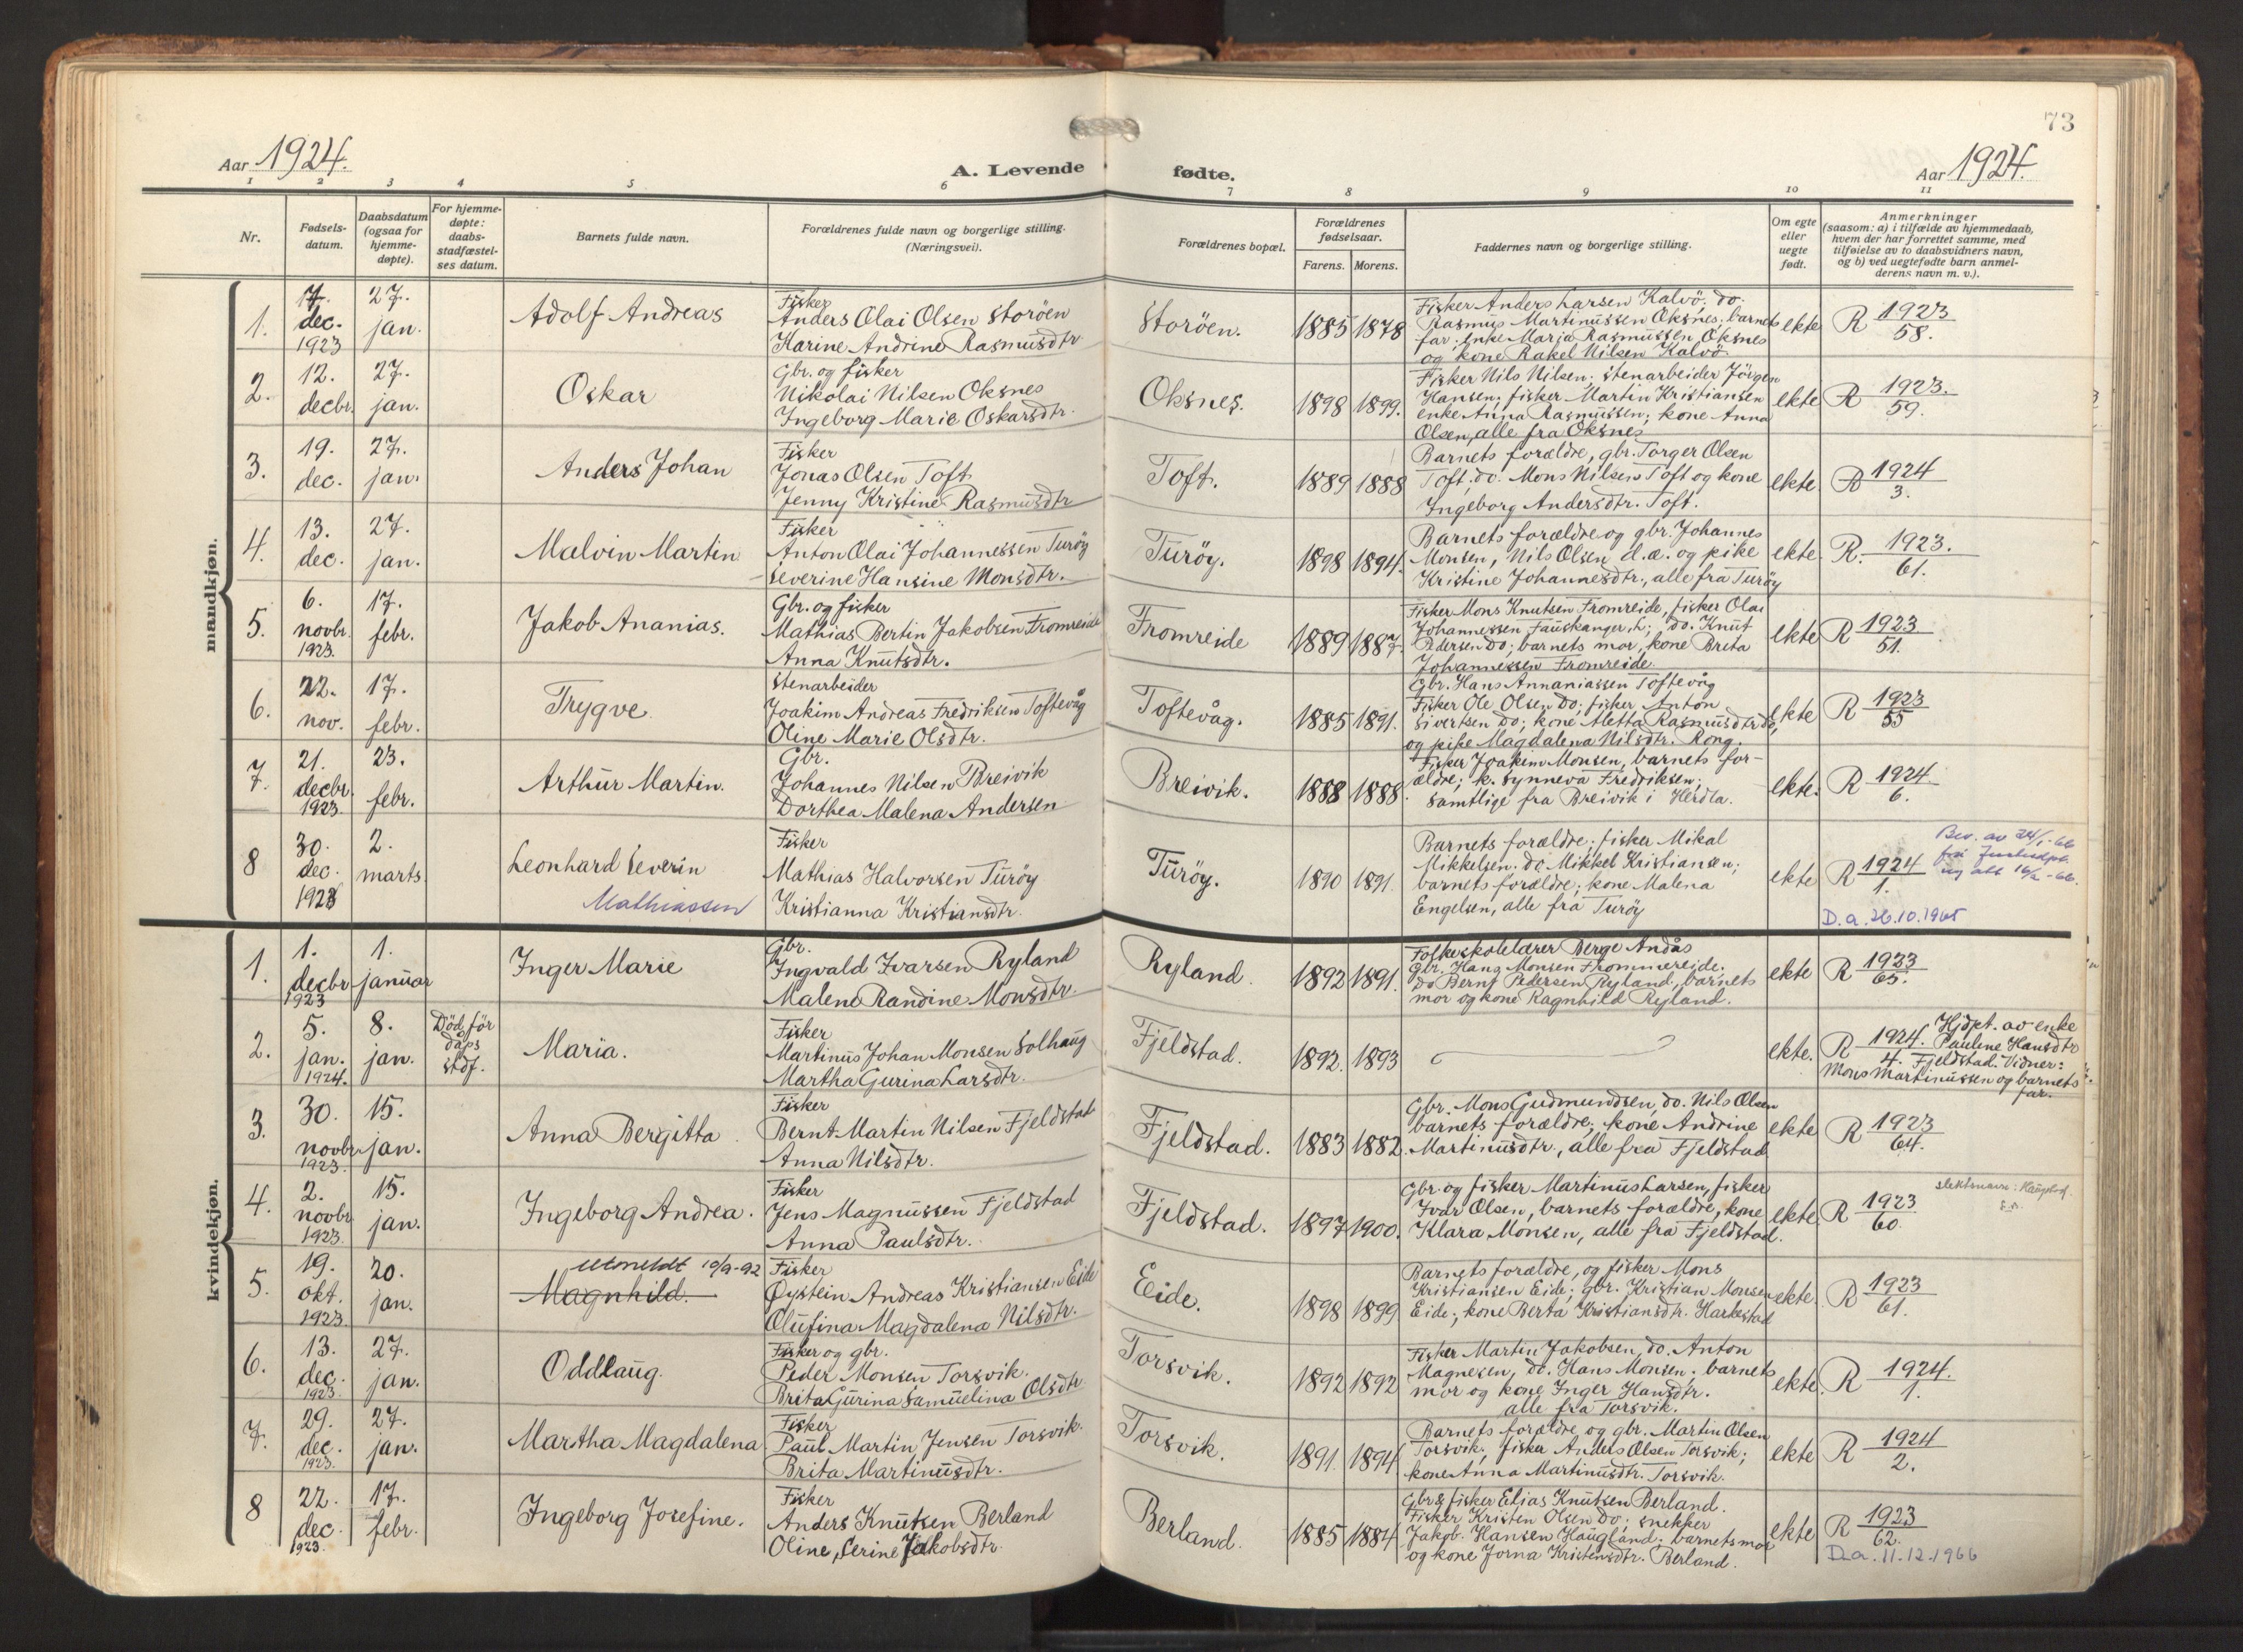 73
Aar 1924.
A. Levende fødte.
Aar 1924.
1 2 3 4 5 6 7 8 9 10 11
Nr.
Fødsels-
datum.
Daabsdatum
(ogsaa for
hjemme-
døpte).
For hjemme-
døpte:
daabs-
stadfæstel-
ses datum.
Barnets fulde navn.
Forældrenes fulde navn og borgerlige stilling.
(Næringsvei).
Forældrenes bopæl.
Forældrenes
fødselsaar.
Farens. Morens.
Faddernes navn og borgerlige stilling.
Om egte
eller
uegte
født.
Anmerkninger
(saasom: a) i tilfælde av hjemmedaab,
hvem der har forrettet samme, med
tilføielse av to daabsvidners navn,
og b) ved uegtefødte barn anmel-
derens navn m. v.).
mandkjøn.
1.
dec.
1923
27.
jan.
Adolf Andreas
Fisker
Anders Olai Olsen Storöen
Karine Andrine Rasmusdtr
Storöen.
1885 1878
Fisker Anders Larsen Kalvö; do.
Rasmus Martinussen Oksnes; barnets
far; enke Maria Rasmussen Oksnes
og kone Rakel Nilsen Kalvö.
ekte
R 1923
58.
2.
12.
decbr.
27.
jan.
Oskar
Gbr. og fisker
Nikolai Nilsen Oksnes
Ingeborg Marie Oskarsdtr.
Oksnes.
1898 1899.
Fisker Nils Nilsen; stenarbeider Jörgen
Hansen; fisker Martin Kristiansen
enke Anna Rasmussen; kone Anna
Olsen, alle fra Oksnes
ekte
R 1923.
59.
3.
19.
dec.
27.
jan.
Anders Johan
Fisker
Jonas Olsen Toft
Jenny Kristine Rasmusdtr
Toft.
1889 1888
Barnets forældre, gbr. Torger Olsen
Toft; do. Mons Nilsen Toft og kone
Ingeborg Andersdtr. Toft.
ekte
R 1924
3.
4.
13.
dec.
27.
jan.
Malvin Martin
Fisker
Anton Olai Johannessen Turöy
Severine Hansine Monsdtr.
Turöy.
1898 1894.
Barnets forældre og gbr. Johannes
Monsen, Nils Olsen d.æ. og pike
Kristine Johannesdtr., alle fra Turöy
ekte
R. 1923.
61.
5.
6.
novbr.
1923.
17.
febr.
Jakob Ananias.
Gbr. og fisker
Mathias Bertin Jakobsen Fromreide
Anna Knutsdtr.
Fromreide
1889 1887.
Fisker Mons Knutsen Fromreide, fisker Olai
Johannessen Fauskanger, do. Knut
Pedersen do; barnets mor, kone Brita
Johannessen Fromreide
ekte
R 1923
51.
6.
22.
nov.
17.
febr.
Trygve
Stenarbeider
Joakim Andreas Fredriksen Toftevåg
Oline Marie Olsdtr.
Toftevåg.
1885 1891.
Gbr. Hans Annaniassen Toftevåg
Fisker Ole Olsen do; fisker Anton
Sivertsen do; kone Aletta Rasmusdtr do;
og pike Magdalena Nilsdtr. Rong.
ekte
R 1923
55
7.
21.
decbr.
1923.
23.
febr.
Arthur Martin.
Gbr.
Johannes Nilsen Breivik
Dorthea Malena Andersen
Breivik.
1888 1888.
Fisker Joakim Monsen, barnets for-
ældre; k. Synneva Fredriksen;
samtlige fra Breivik i Herdla.
ekte.
R 1924
6.
8
30.
dec.
1923
2.
marts
Leonhard Severin
Mathiassen
Fisker
Mathias Halvorsen Turöy
Kristianna Kristiansdtr.
Turöy.
1890 1891.
Barnets forældre; fisker Mikal
Mikkelsen. do. Mikkel Kristiansen;
barnets forældre; kone Malena
Engelsen, alle fra Turöy
ekte
R 1924
1.
D.a. 26.10.1965
kvindekjøn.
1.
1.
decbr
1923
1.
januar
Inger Marie
Gbr.
Ingvald Ivarsen Ryland
Malene Randine Monsdtr.
Ryland.
1892 1891.
Folkeskolelærer Berge Andås
Gbr. Hans Monsen Frommereide;
do Bernt Pedersen Ryland, barnets
mor og kone Ragnhild Ryland.
ekte
R 1923
65.
2.
5.
jan.
1924.
8.
jan.
Död för
dåps
stdf.
Maria.
Fisker
Martinus Johan Monsen Solhaug
Martha Gurina Larsdtr.
Fjeldstad.
1892. 1893
ekte.
R 1924.
4.
Hjdpt. av enke
Paulene Hansdtr
Fjeldstad. Vidner:
Mons Martinussen og barnets
far.
3.
30.
novbr
1923.
15.
jan.
Anna Bergitta
Fisker
Bernt Martin Nilsen Fjeldstad
Anna Nilsdtr.
Fjeldstad.
1883 1882.
Gbr. Mons Gudmundsen, do. Nils Olsen
barnets forældre; kone Andrine
Martinusdtr., alle fra Fjeldstad
ekte
R 1923
64.
4.
2.
novbr
1923.
15.
jan.
Ingeborg Andrea.
Fisker
Jens Magnussen Fjeldstad
Anna Paulsdtr.
Fjeldstad.
1897 1900.
Gbr. og fisker Martinus Larsen, fisker
Ivar Olsen, barnets forældre, kone
Klara Monsen, alle fra Fjeldstad.
ekte
R 1923
60.
5.
19.
okt.
1923.
20.
jan.
Utmeldt 10/9-92
Magnhild.
Fisker
Øystein Andreas Kristiansen Eide
Olufina Magdalena Nilsdtr.
Eide.
1898 1899
Barnets forældre, og fisker Mons
Kristiansen Eide; gbr. Kristian Monsen
Eide; kone Berta Kristiansdtr. Harkestad
ekte.
R 1923
61.
6.
13.
dec.
1923.
27.
jan.
Oddlaug.
Fisker og gbr.
Peder Monsen Torsvik.
Brita Gurina Samuelina Olsdtr
Torsvik.
1892 1892
Fisker Martin Jakobsen, do. Anton
Magnesen, do. Hans Monsen; barnets
mor og kone Inger Hansdtr.
alle fra Torsvik.
ekte.
R 1924.
1.
7.
29.
dec.
1923.
27.
jan.
Martha Magdalena
Fisker
Paul Martin Jensen Torsvik.
Brita Martinusdtr.
Torsvik.
1891. 1894
Barnets forældre og gbr. Martin Olsen
Torsvik; fisker Anders Olsen Torsvik;
kone Anna Martinusdtr. Torsvik.
ekte
R 1924
2.
8
22.
dec.
1923.
17.
febr.
Ingeborg Josefine.
Fisker
Anders Knutsen Berland
Oline Serine Jakobsdtr.
Berland.
1885 1884
Gbr & fisker Elias Knutsen Berland.
Fisker Kristen Olsen do; snekker
Jakob Hansen Haugland; barnets mor
og kone Jorna Kristensdtr. Berland.
ekte
R 1923
62.
D.a. 11.12.1966